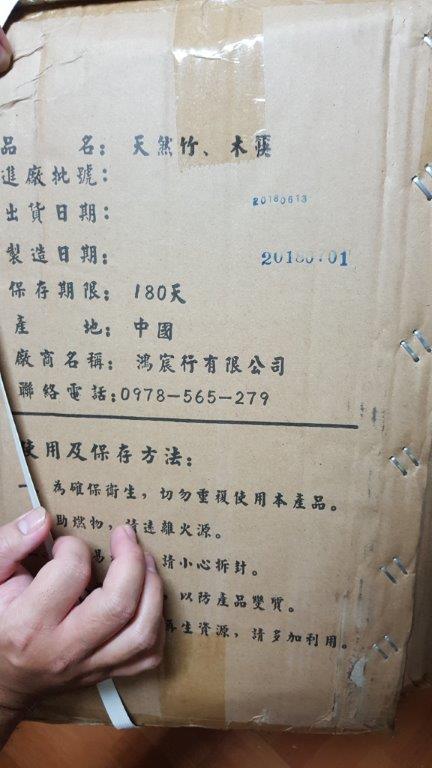 品 名：天然竹、木筷
進廠批號：
出貨日期： 20180613
製造日期： 20180701
保存期限：180天
產 地：中國
廠商名稱：鴻宸行有限公司
聯絡電話：0978-565-279
使用及保存方法：
一 為確保衛生，切勿重複使用本產品。
助燃物，請遠離火源。
易 請小心拆封。
，以防產品變質。
再生資源，請多加利用。